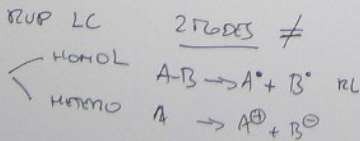 RUP LC 2 MODES ≠
HOMOL A-B → A• + B• RL
HETERO A → A⊕ + B⊖